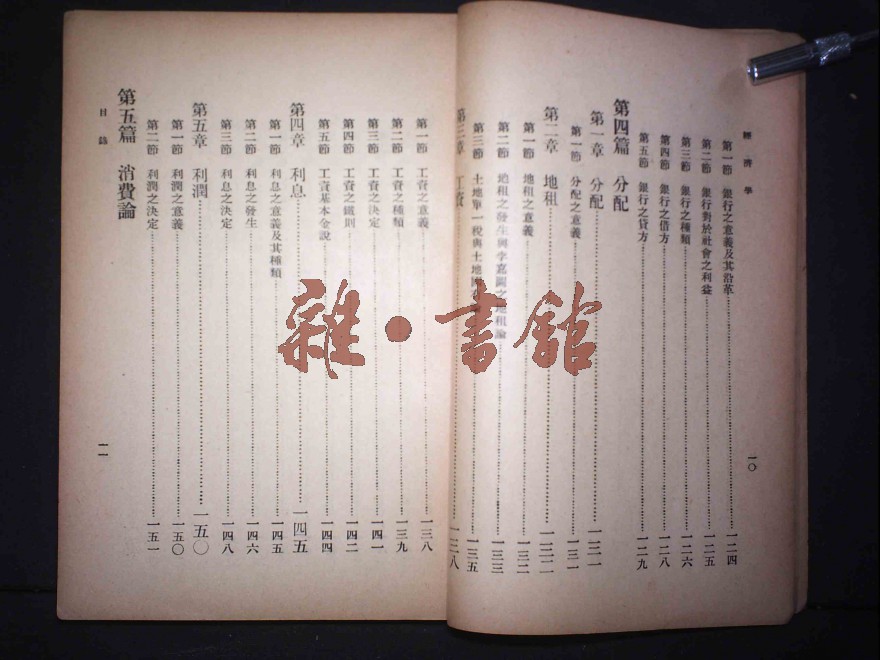 經濟學
第一節 銀行之意義及其沿革 一二四
第二節 銀行對於社會之利益 一二五
第三節 銀行之種類 一二六
第四節 銀行之借方 一二八
第五節 銀行之貸方 一二九
第四篇 分配
第一章 分配 一三一
第一節 分配之意義 一三一
第二章 地租 一三二
第一節 地租之意義 一三二
第二節 地租之發生與李嘉圖之地租論 一三三
第三節 土地單一稅與土地國 一三五
第三章 工資 一三八
一〇
第一節 工資之意義 一三八
第二節 工資之種類 一三九
第三節 工資之決定 一四一
第四節 工資之鐵則 一四二
第五節 工資基本金說 一四四
第四章 利息 一四五
第一節 利息之意義及其種類 一四五
第二節 利息之發生 一四六
第三節 利息之決定 一四八
第五章 利潤 一五〇
第一節 利潤之意義 一五〇
第二節 利潤之決定 一五一
第五篇 消費論
目錄
一一
雜·書館